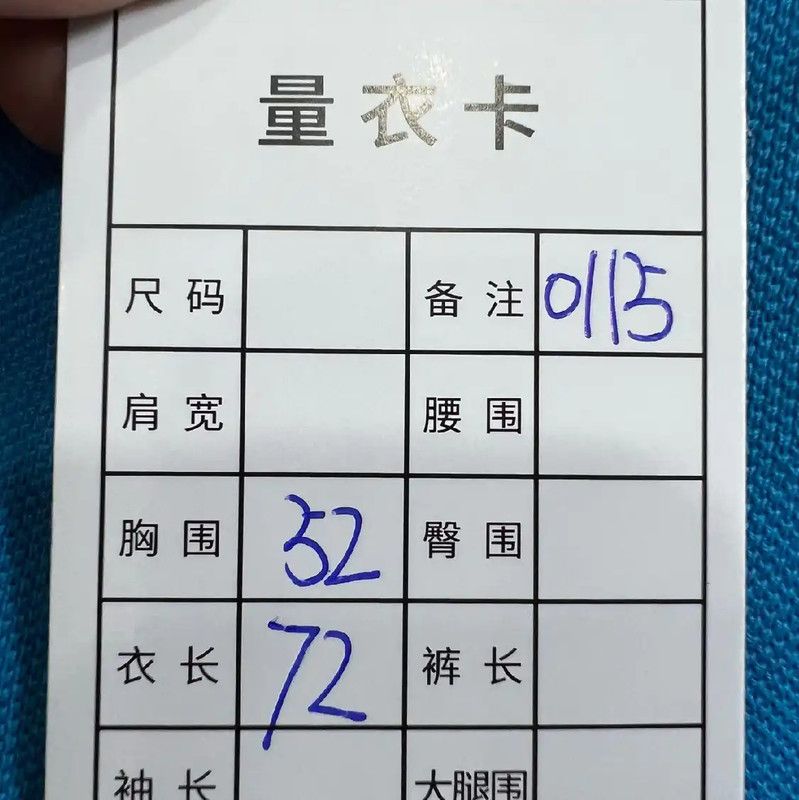 量衣卡
尺码 备注 0115
肩宽 腰围
胸围 52 臀围
衣长 72 裤长
袖长 大腿围